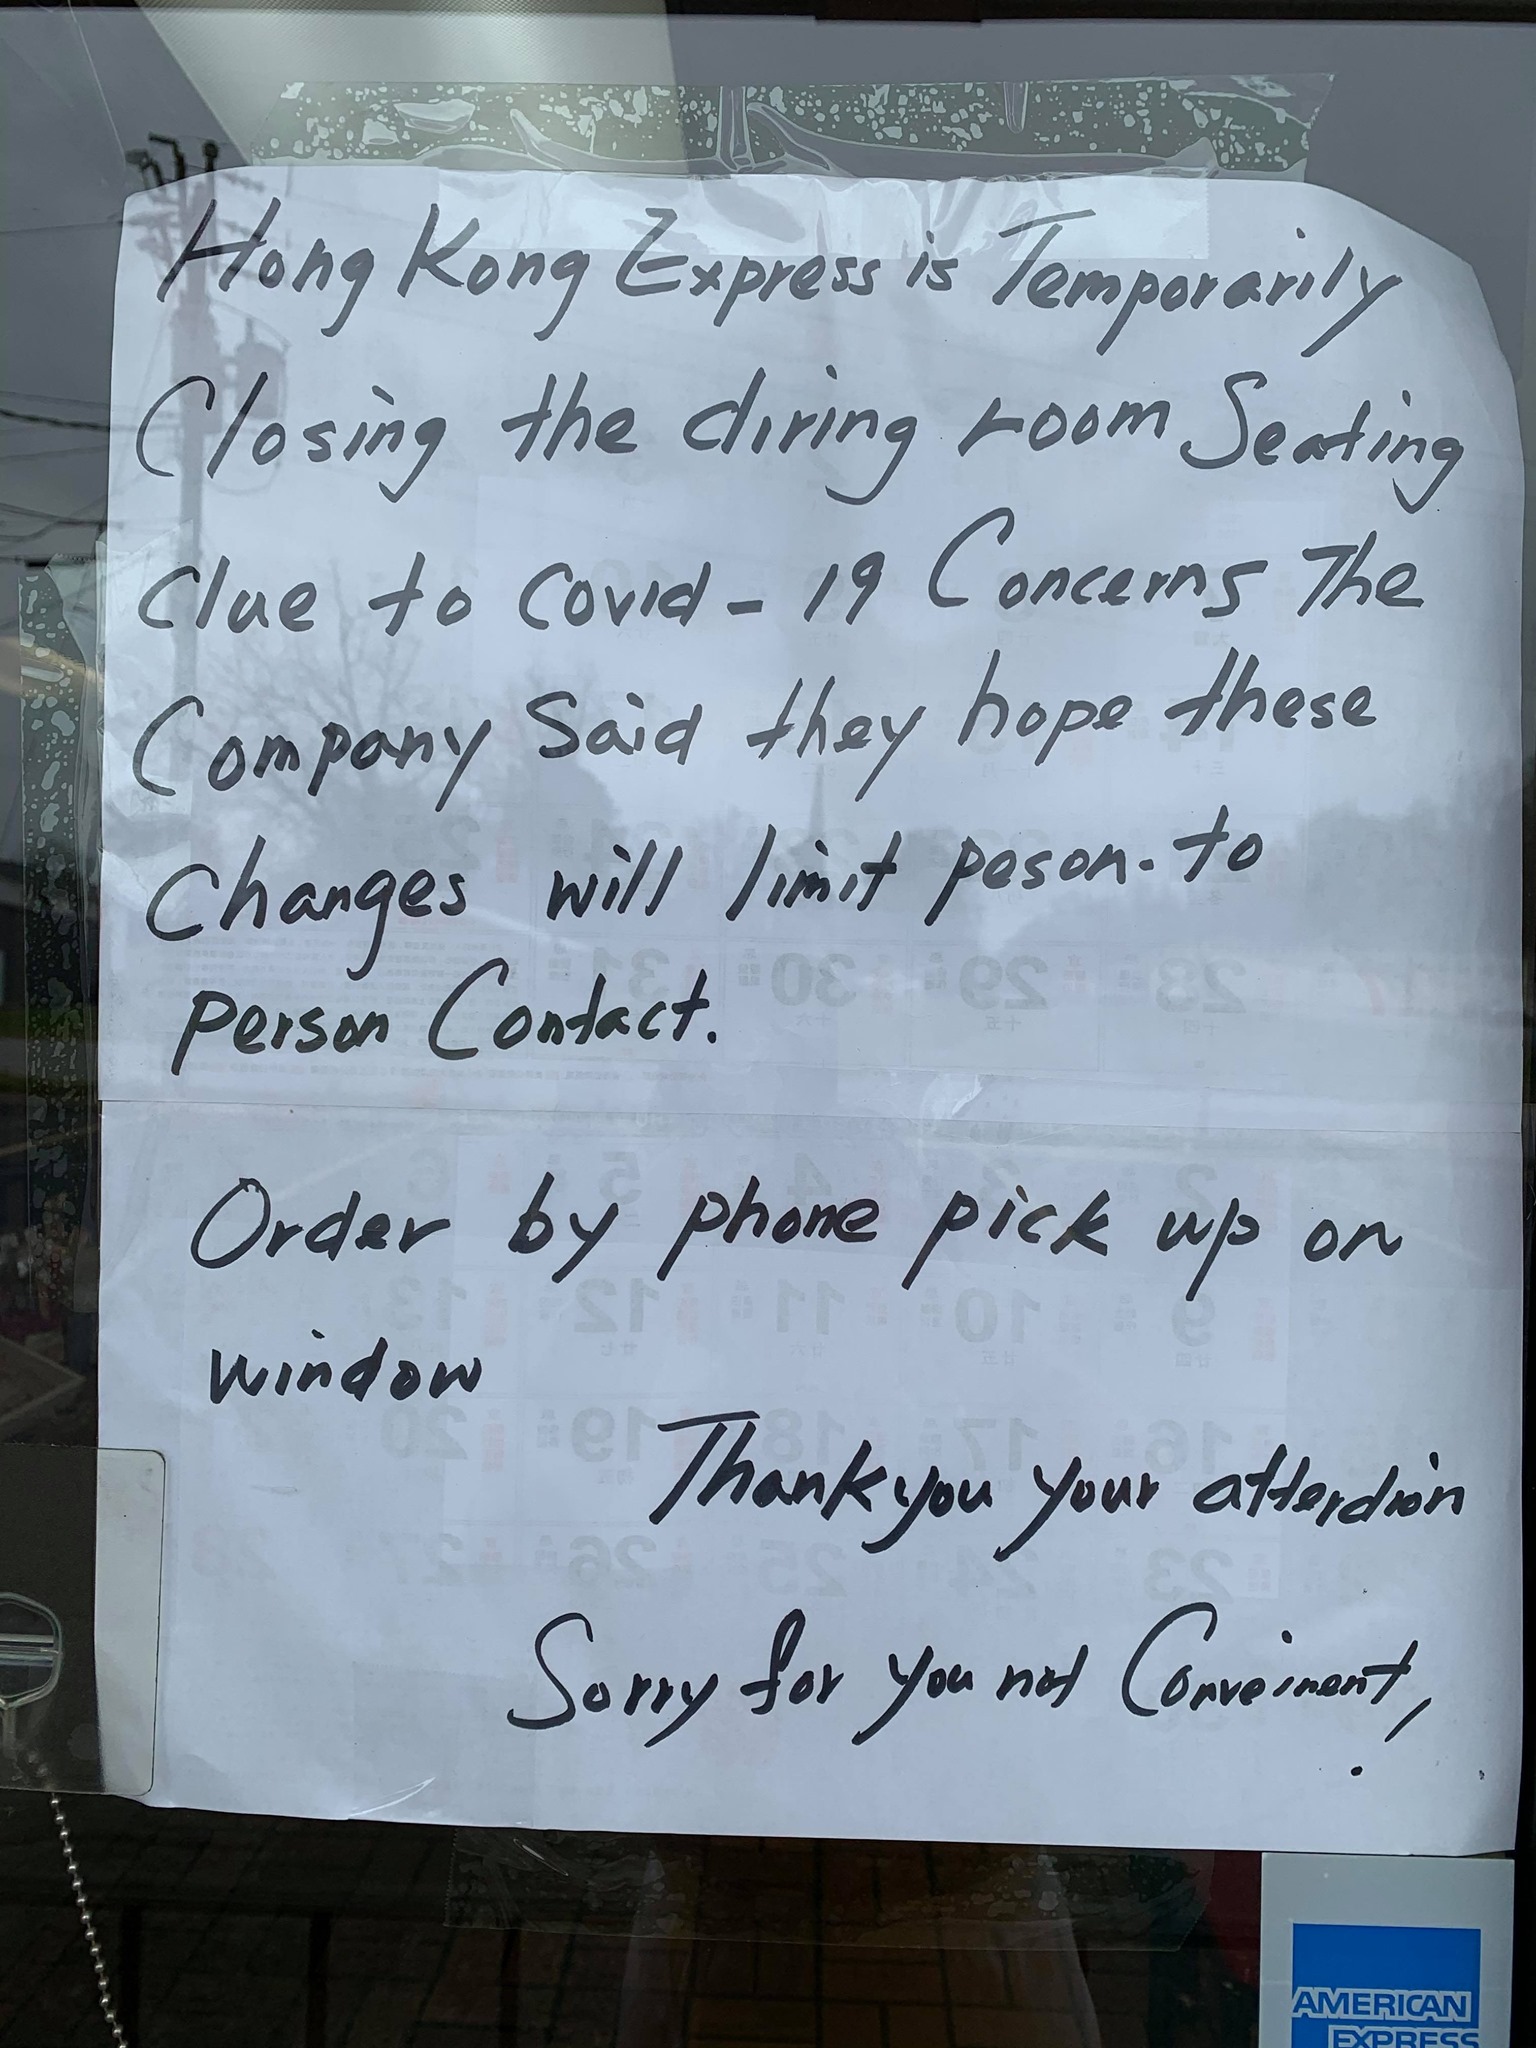 Hong Kong Express is Temporarily
Closing the dining room Seating
due to Covid-19 Concerns The
Company Said they hope these
Changes will limit peson-to
person Contact.
Order by phone pick up on
window
Thank you your attention
Sorry for you not Conveinent,
AMERICAN
EXPRESS